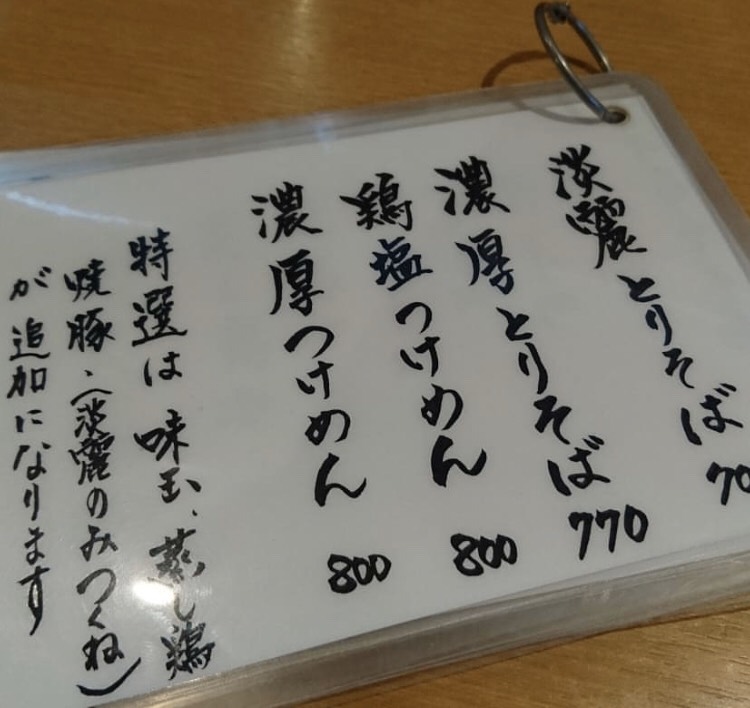 淡麗とりそば 70
濃厚とりそば 770
鶏塩つけめん 800
濃厚つけめん 800
特選は 味玉、蒸し鶏
焼豚、(淡麗のみつくね)
が追加になります